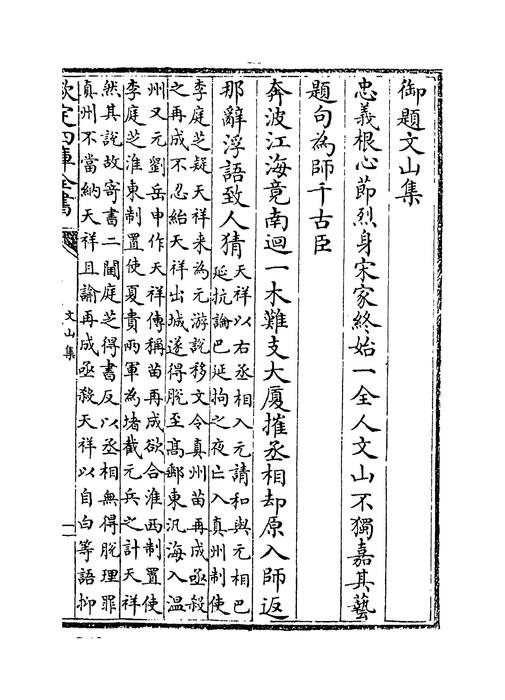 御題文山集
忠義根心節烈身宋家終始一全人文山不獨嘉其藝
題句為師千古臣
奔波江海竟南迴一木難支大厦摧丞相却原入師返
那辭浮語致人猜
天祥以右丞相入元請和與元相巴
延抗論巴延拘之夜亡入真州制使
李庭芝疑天祥来為元游說移文令真州苗再成丞殺
之再成不忍紿天祥出城遂得脱至髙郵東汎海入温
州又元劉岳申作天祥傳稱苗再成欲合淮西制置使
李庭芝淮東制置使夏貴兩軍為堵截元兵之計天祥
然其說故寄書二閫庭芝得書反以丞相無得脱理罪
真州不當納天祥且諭再成丞殺天祥以自白等語抑
欽定四庫全書
文山集
一